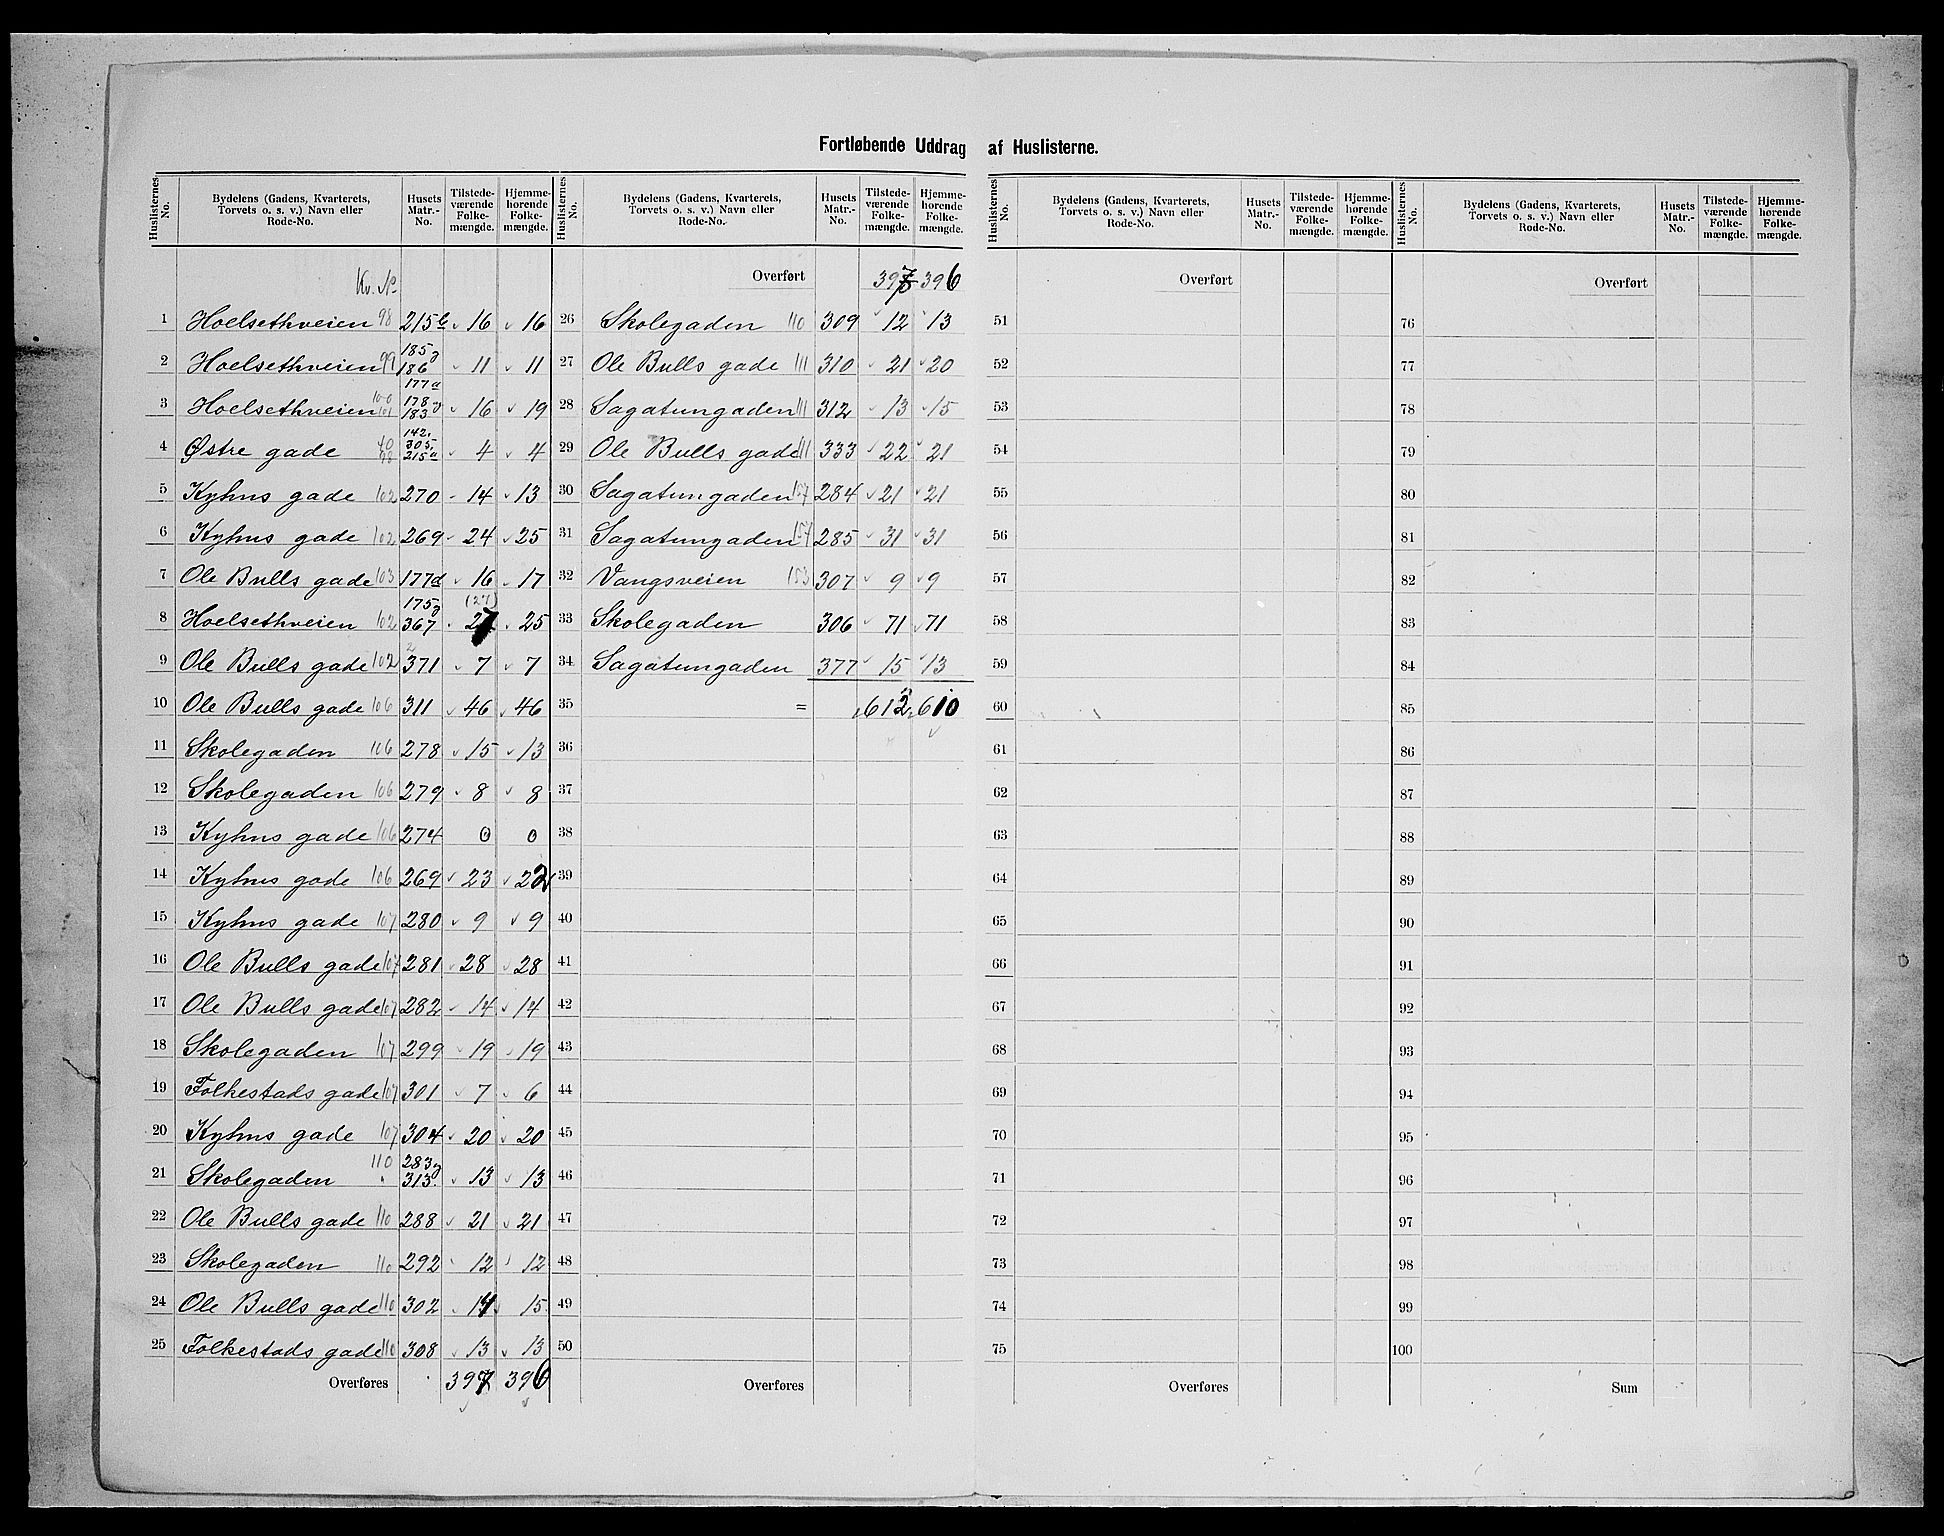 Fortløbende Uddrag af Huslisterne.
Huslisternes No. | Bydelens (Gadens, Kvarterets, Torvets o. s. v.) Navn eller Rode-No. | Husets Matr.-No. | Tilstedeværende Folkemængde. | Hjemmehørende Folkemængde.
Kv. No
1 Hoelsethveien 98 215b 16 16
2 Hoelsethveien 99 185, 186 11 11
3 Hoelsethveien 100 101 177a 178, 183 16 19
4 Østre gade 142. 305. 215a 4 4
5 Kyhns gade 102 270 14 13
6 Kyhns gade 102 269 24 25
7 Ole Bulls gade 103 177d 16 17
8 Hoelsethveien 102 175, 367 (27) 27 25
9 Ole Bulls gade 102 371 7 7
10 Ole Bulls gade 106 311 46 46
11 Skolegaden 106 278 15 13
12 Skolegaden 106 279 8 8
13 Kyhns gade 106 274 0 0
14 Kyhns gade 106 269 23 22
15 Kyhns gade 107 280 9 9
16 Ole Bulls gade 107 281 28 28
17 Ole Bulls gade 107 282 14 14
18 Skolegaden 107 299 19 19
19 Folkestads gade 107 301 7 6
20 Kyhns gade 107 304 20 20
21 Skolegaden 110 283, 313. 13 13
22 Ole Bulls gade 110 288 21 21
23 Skolegaden 110 292 12 12
24 Ole Bulls gade 110 302 14 15
25 Folkestads gade 110 308 13 13
Overføres 397 396
Huslisternes No. | Bydelens (Gadens, Kvarterets, Torvets o. s. v.) Navn eller Rode-No. | Husets Matr.-No. | Tilstedeværende Folkemængde. | Hjemmehørende Folkemængde.
Overført 397 396
26 Skolegaden 110 309 12 13
27 Ole Bulls gade 111 310 21 20
28 Sagatungaden 111 312 13 15
29 Ole Bulls gade 111 333 22 21
30 Sagatungaden 157 284 21 21
31 Sagatungaden 157 285 31 31
32 Vangsveien 153 307 9 9
33 Skolegaden 306 71 71
34 Sagatungaden 377 15 13
35 = 612 610
36
37
38
39
40
41
42
43
44
45
46
47
48
49
50
Overføres
Huslisternes No. | Bydelens (Gadens, Kvarterets, Torvets o. s. v.) Navn eller Rode-No. | Husets Matr.-No. | Tilstedeværende Folkemængde. | Hjemmehørende Folkemængde.
Overført
51
52
53
54
55
56
57
58
59
60
61
62
63
64
65
66
67
68
69
70
71
72
73
74
75
Overføres
Huslisternes No. | Bydelens (Gadens, Kvarterets, Torvets o. s. v.) Navn eller Rode-No. | Husets Matr.-No. | Tilstedeværende Folkemængde. | Hjemmehørende Folkemængde.
Overført
76
77
78
79
80
81
82
83
84
85
86
87
88
89
90
91
92
93
94
95
96
97
98
99
100
Sum